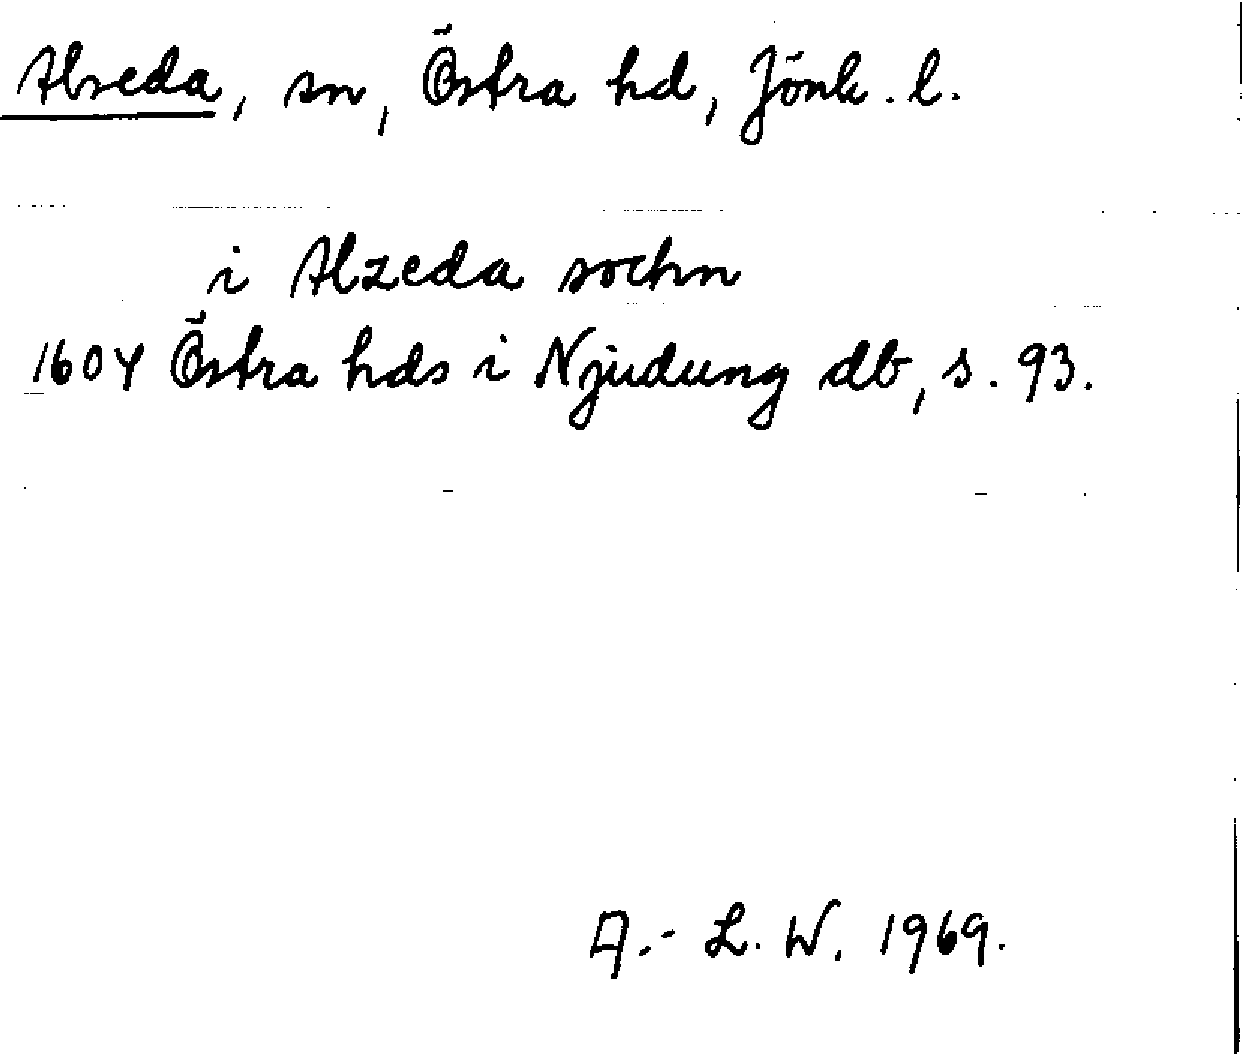 Alseda, sn, Östra hd, Jönk. l.
i Alzeda sochn
1604 Östra hds i Njudung db, s. 93.
A.- L. W. 1969.